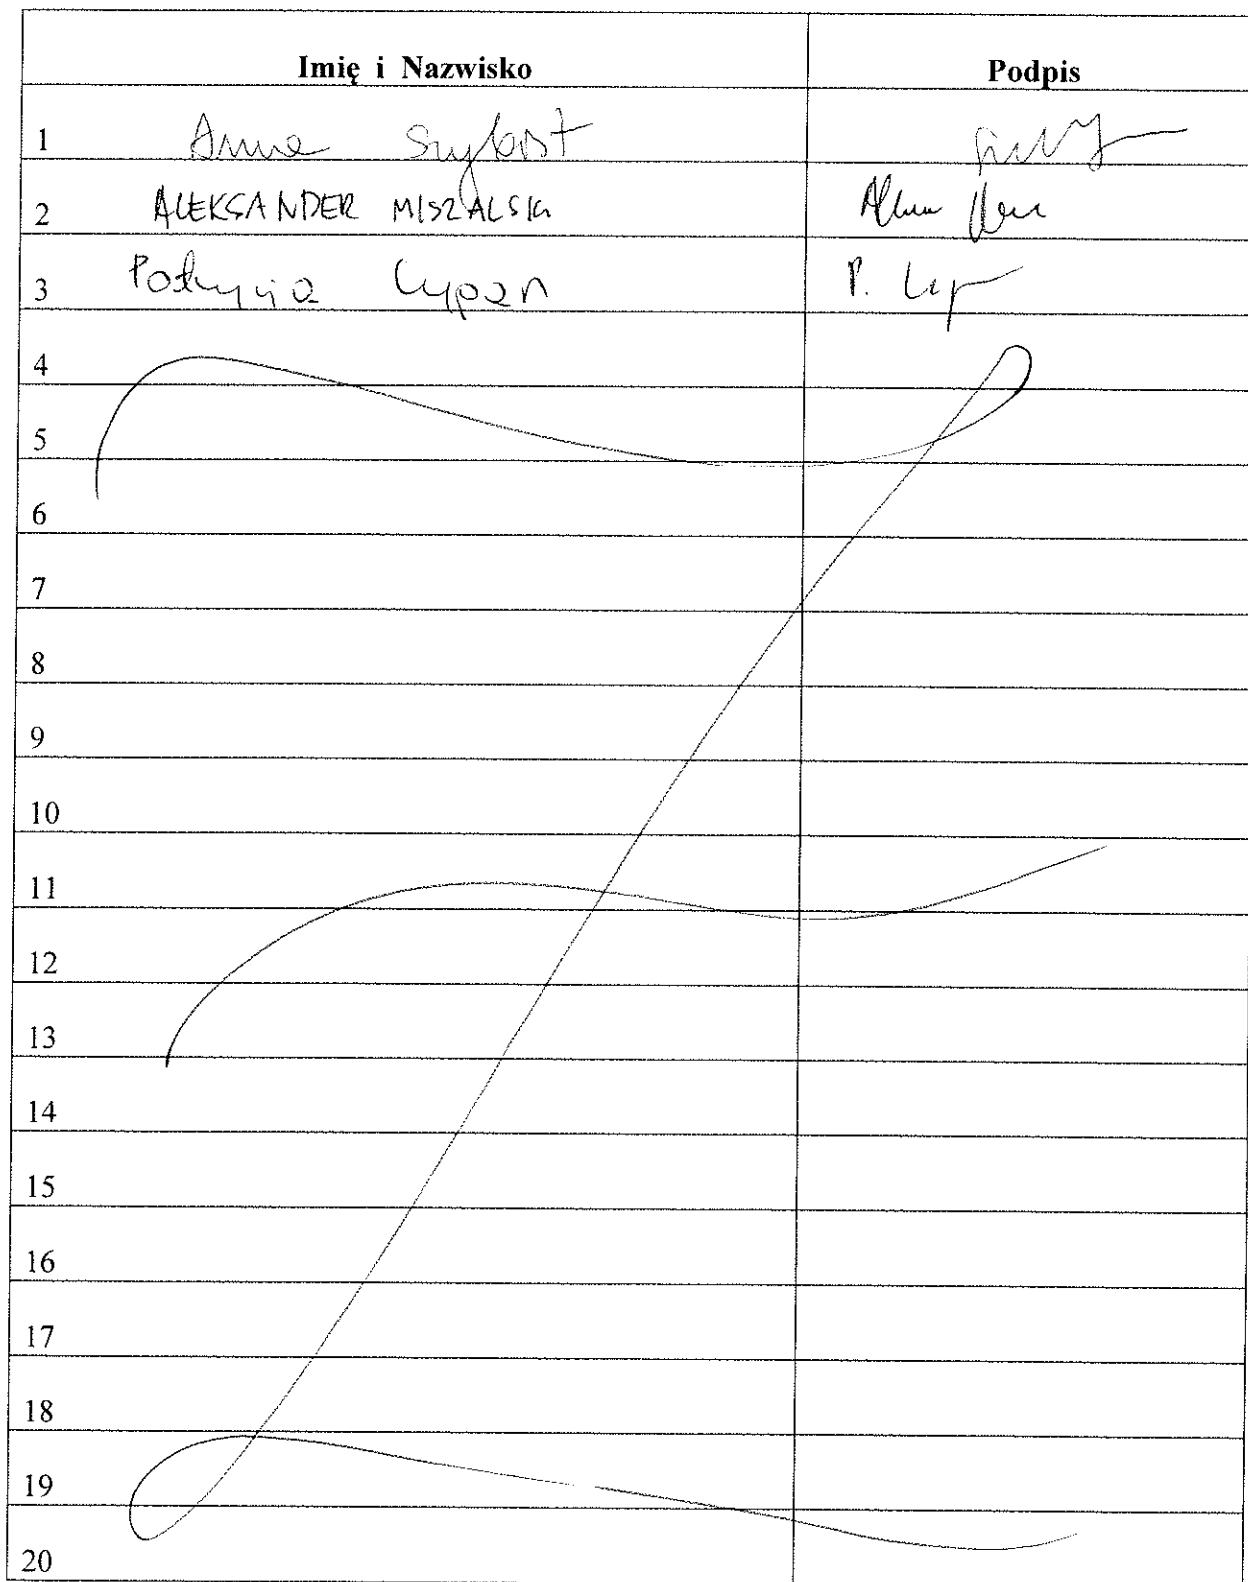 Imię i Nazwisko Podpis
1 Anna
2 ALEKSANDER MISZALSKI
3 Patrycja Cypan P.
4
5
6
7
8
9
10
11
12
13
14
15
16
17
18
19
20